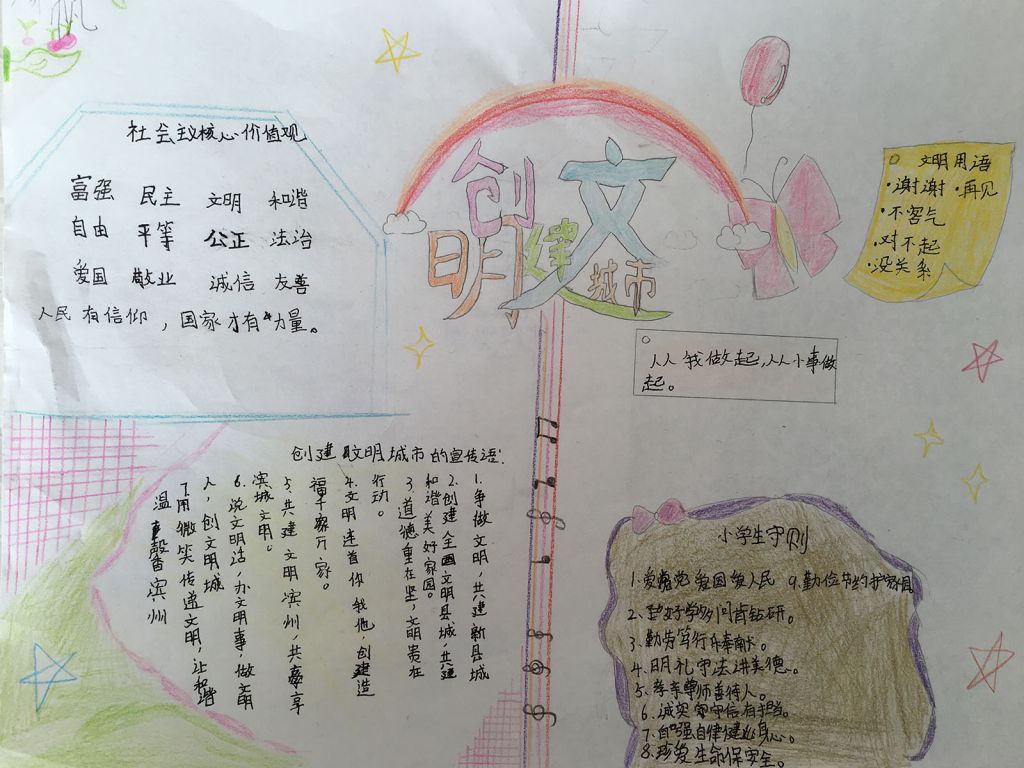 社会主义核心价值观
富强 民主 文明 和谐
自由 平等 公正 法治
爱国 敬业 诚信 友善
人民有信仰，国家才有力量。
创建文明城市
文明用语
·谢谢 ·再见
·不客气
·对不起
·没关系
人人我做起，从小事做
起。
创建文明城市的宣传语:
1.争做文明，共建新县城
2.创建全国文明县城，共建
和谐美好家园。
3.道德重在坚，文明贵在
行动。
4.文明连着你我他，创建造
福千家万家。
5.共建文明滨州，共享
滨城文明。
6.说文明话，办文明事，做文明
人，创文明城
7.用微笑传递文明，让和谐
温馨滨州
小学生守则
1.爱党爱国爱人民 9.勤俭节约护家园
2.好学多问肯钻研。
3.勤劳笃行乐奉献。
4.明礼守法讲美德。
5.孝亲尊师善待人。
6.诚实守信有担当。
7.自强自律健身心。
8.珍爱生命保安全。